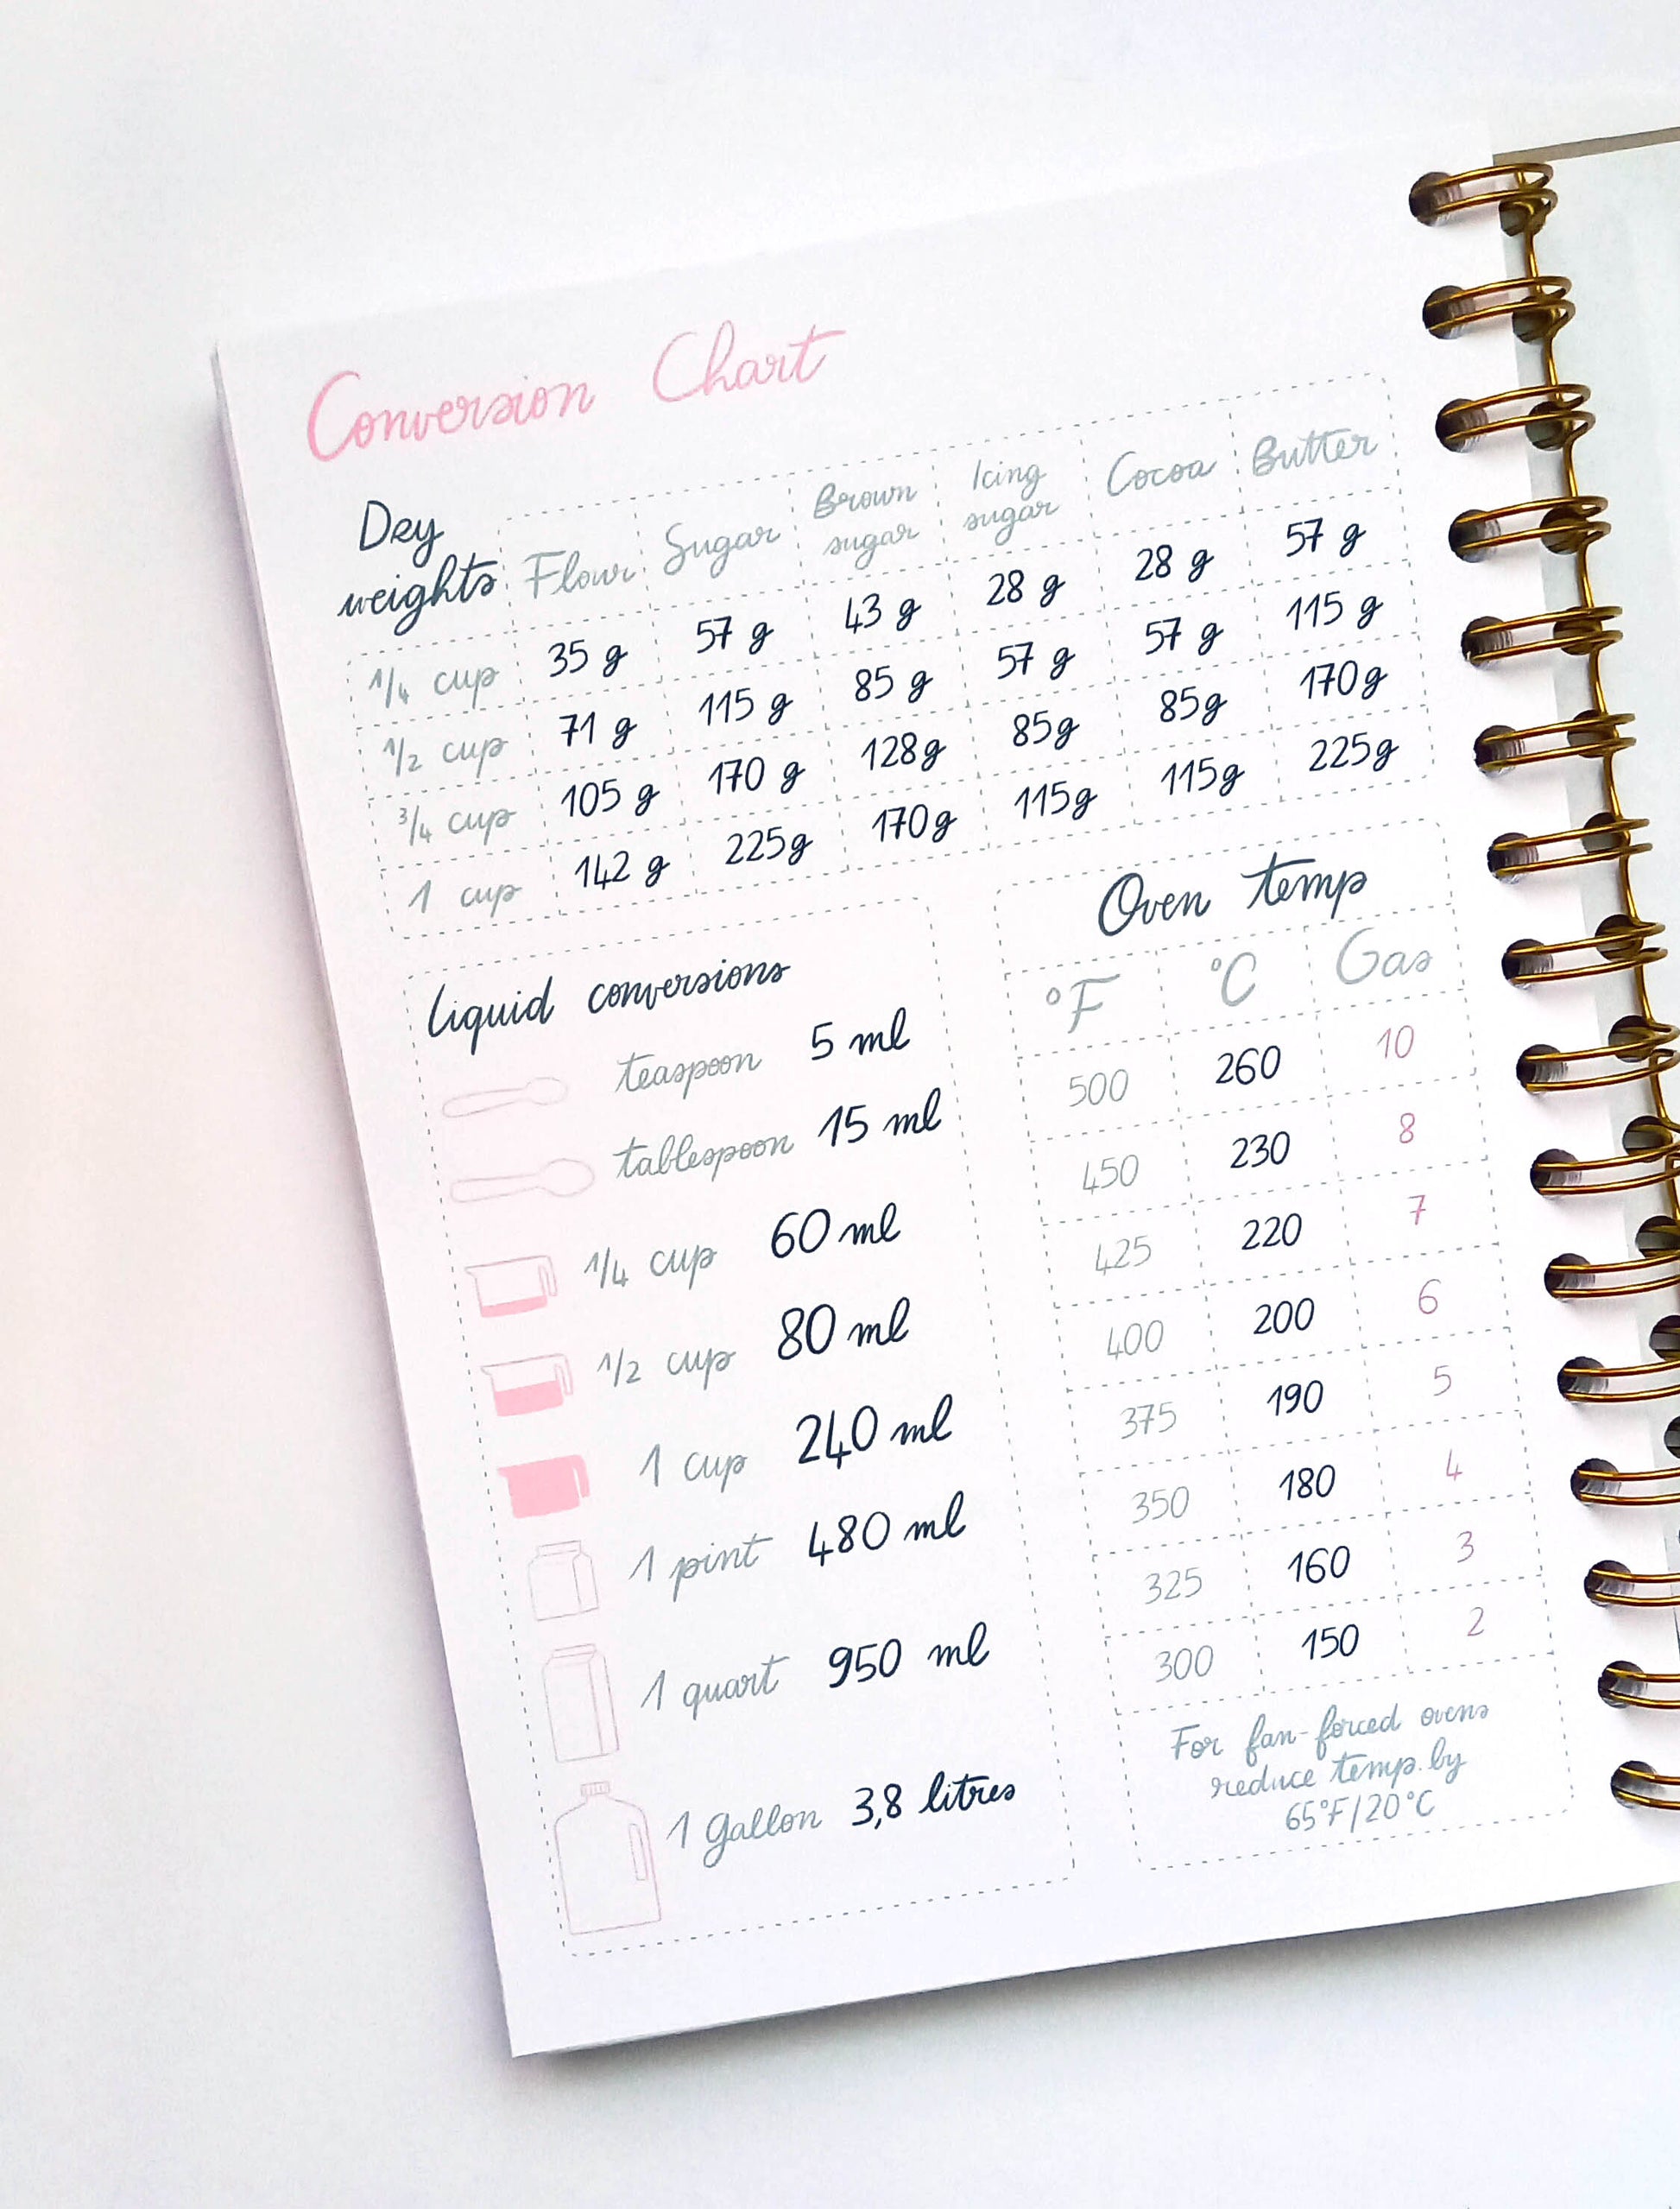 Conversion Chart
Dry weights Flour Sugar Brown sugar Icing sugar Cocoa Butter
1/4 cup 35 g 57 g 43 g 28 g 28 g 57 g
1/2 cup 71 g 115 g 85 g 57 g 57 g 115 g
3/4 cup 105 g 170 g 128g 85g 85g 170g
1 cup 142 g 225g 170g 115g 115g 225g
Liquid conversions
teaspoon 5 ml
tablespoon 15 ml
1/4 cup 60 ml
1/2 cup 80 ml
1 cup 240 ml
1 pint 480 ml
1 quart 950 ml
1 gallon 3,8 litres
Oven temp
°F °C Gas
500 260 10
450 230 8
425 220 7
400 200 6
375 190 5
350 180 4
325 160 3
300 150 2
For fan-forced ovens
reduce temp. by
65°F/20°C